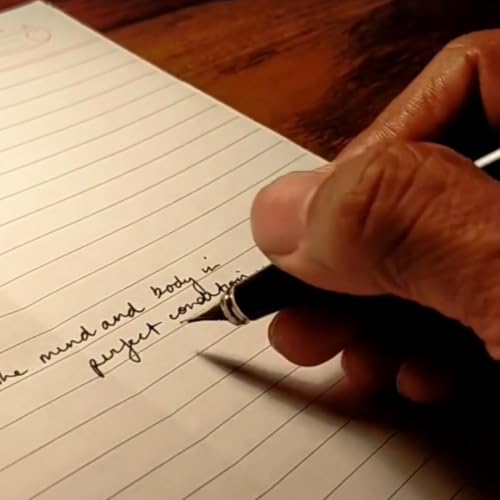 the mind and body in
perfect condition